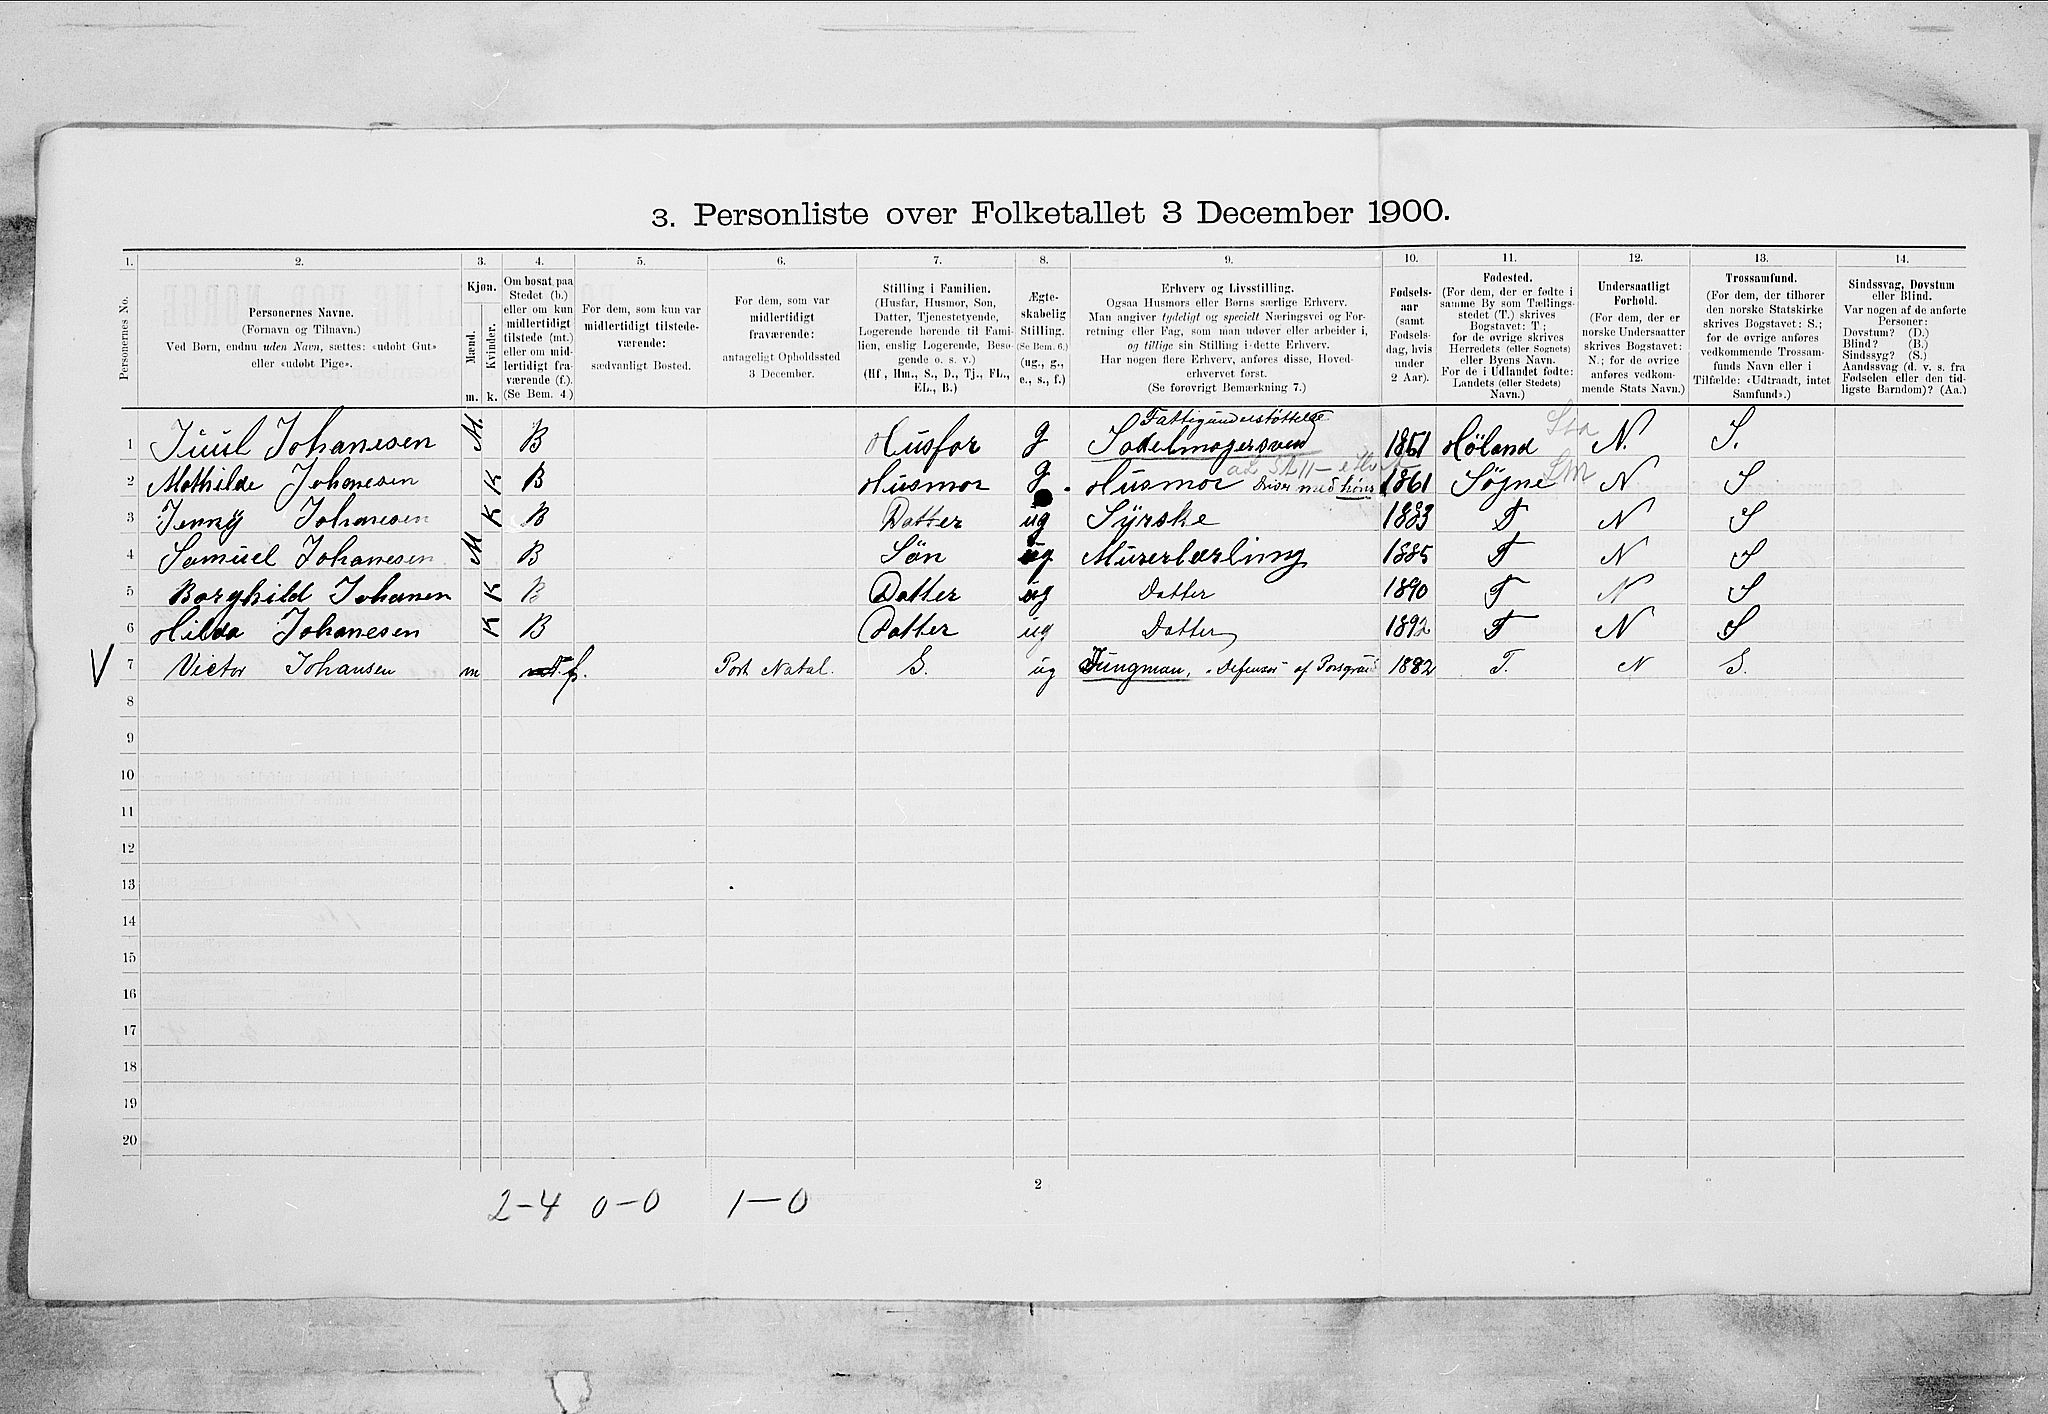 3. Personliste over Folketallet 3 December 1900.
1. 2. 3. 4. 5. 6. 7. 8. 9. 10. 11. 12. 13. 14.
Personernes No.
Personernes Navne.
(Fornavn og Tilnavn.)
Ved Børn, endnu uden Navn, sættes: «udøbt Gut»
eller «udøbt Pige».
Kjøn.
Mænd.
Kvinder.
m. k.
Om bosat paa
Stedet (b.)
eller om kun
midlertidigt
tilstede (mt.)
eller om mid-
lertidigt fra-
værende (f.).
(Se Bem. 4)
For dem, som kun var
midlertidigt tilstede-
værende:
sædvanligt Bosted.
For dem, som var
midlertidigt
fraværende:
antageligt Opholdssted
3 December.
Stilling i Familien.
(Husfar, Husmor, Søn,
Datter, Tjenestetyende,
Logerende hørende til Fami-
lien, enslig Logerende, Besø-
gende o. s. v.)
(Hf., Hm., S., D., Tj., FL.,
EL., B.)
Ægte-
skabelig
Stilling.
(Se Bem. 6.)
(ug., g.,
e., s., f.)
Erhverv og Livsstilling.
Ogsaa Husmors eller Børns særlige Erhverv.
Man angiver tydeligt og specielt Næringsvei og For-
retning eller Fag, som man udøver eller arbeider i,
og tillige sin Stilling i dette Erhverv.
Har nogen flere Erhverv, anføres disse, Hoved-
erhvervet først.
(Se forøvrigt Bemærkning 7.)
Fødsels-
aar
(samt
Fødsels-
dag, hvis
under
2 Aar).
Fødested.
(For dem, der er fødte i
samme By som Tællings-
stedet (T.) skrives
Bogstavet: T.;
for de øvrige skrives
Herredets (eller Sognets)
eller Byens Navn.
For de i Udlandet fødte:
Landets (eller Stedets)
Navn.)
Undersaatligt
Forhold.
(For dem, der er
norske Undersaatter
skrives Bogstavet:
N.; for de øvrige
anføres vedkom-
mende Stats Navn.)
Trossamfund.
(For dem, der tilhører
den norske Statskirke
skrives Bogstavet: S.;
for de øvrige anføres
vedkommende Trossam-
funds Navn eller i
Tilfælde: «Udtraadt, intet
Samfund».)
Sindssvag, Døvstum
eller Blind.
Var nogen af de anførte
Personer:
Døvstum? (D.)
Blind? (B.)
Sindssyg? (S.)
Aandssvag (d. v. s. fra
Fødselen eller den tid-
ligste Barndom)? (Aa.)
Fattigunderstøttelse
1 Juul Johanesen M. B Husfar g Sadelmagersvend 1851 Høland N. S.
2 Mathilde Johanesen K B Husmor g. Husmor Driver med høns 1861 Søgne N S
3 Jenny Johanesen K B Datter ug Syrske 1883 T N S
4 Samuel Johanesen M B Søn ug Murerlærling 1885 T N S
5 Borghild Johanen K B Datter ug Datter 1890 T N S
6 Hilda Johanesen K B Datter ug Datter 1892 T N S
V 7 Victor Johansen m f. Port Natal. S. ug Jungman, "Defensor" af Porsgrund 1882 T. N S.
8
9
10
11
12
13
14
15
16
17
18
19
20
2
2-4 0-0 1-0